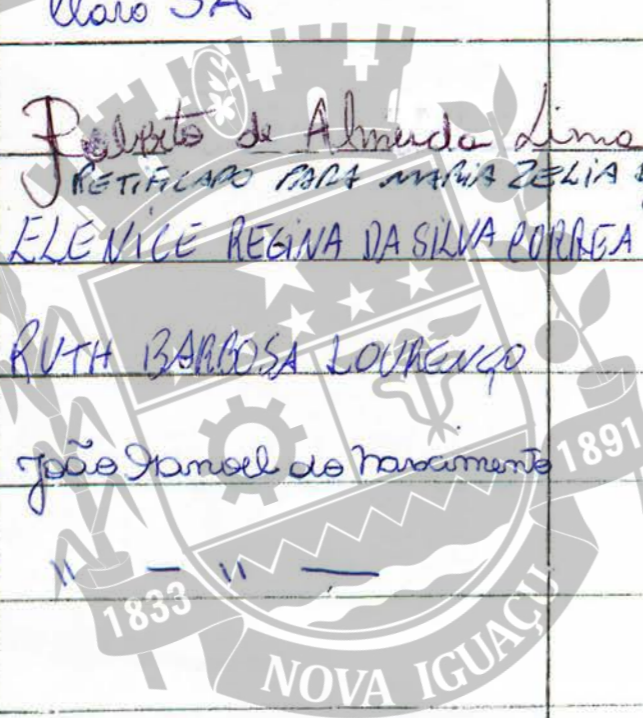 Claro SA
Roberto de Almeida Lima
RETIFICADO PARA MARIA ZELIA
ELENICE REGINA DA SILVA CORREA
RUTH BARBOSA LOURENÇO
João Manoel do Nascimento
" — " —
1891
1833
NOVA IGUAÇU